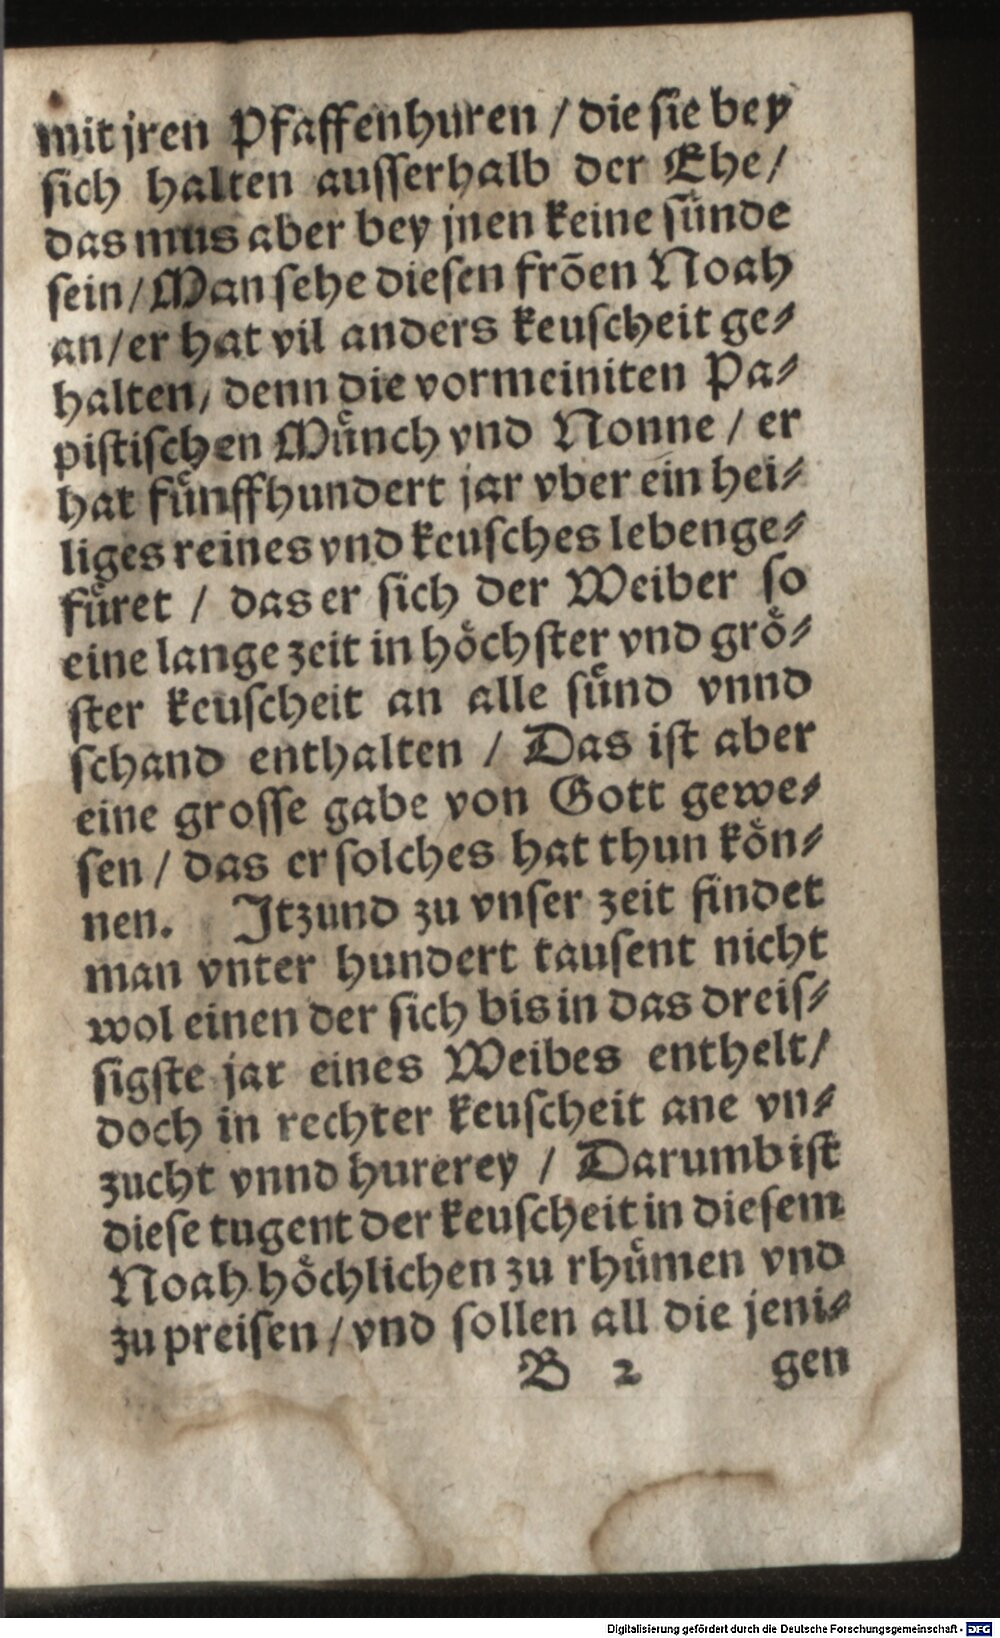 mit jren Pfaffenhuren / die sie bey
sich halten ausserhalb der Ehe /
das mus aber bey jnen keine sünde
sein / Man sehe diesen frõen Noah
an / er hat vil anders keuscheit ge⸗
halten / denn die vormeiniten Pa⸗
pistischen Münch vnd Nonne / er
hat fünffhundert jar vber ein hei⸗
liges reines vnd keusches leben ge⸗
füret / das er sich der Weiber so
eine lange zeit in höchster vnd grö⸗
ster keuscheit an alle sünd vnnd
schand enthalten / Das ist aber
eine grosse gabe von Gott gewe⸗
sen / das er solches hat thun kön⸗
nen. Itzund zu vnser zeit findet
man vnter hundert tausent nicht
wol einen der sich bis in das dreis⸗
sigste jar eines Weibes enthelt /
doch in rechter keuscheit ane vn⸗
zucht vnnd hurerey / Darumb ist
diese tugent der keuscheit in diesem
Noah höchlichen zu rhümen vnd
zu preisen / vnd sollen all die jeni⸗
B 2 gen
Digitalisierung gefördert durch die Deutsche Forschungsgemeinschaft - DFG